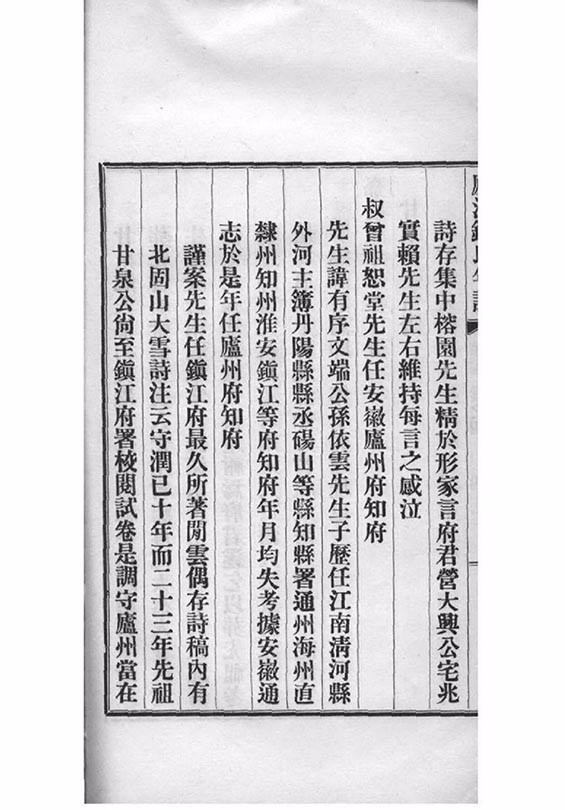 詩存集中榕園先生精於形家言府君營大興公宅兆
實賴先生左右維持每言之感泣
叔曾祖恕堂先生任安徽廬州府知府
先生諱有序文端公孫依雲先生子歷任江南清河縣
外河主簿丹陽縣縣丞碭山等縣知縣署通州海州直
隸州知州淮安鎮江等府知府年月均失考據安徽通
志於是年任廬州府知府
謹案先生任鎮江府最久所著閒雲偶存詩稿內有
北固山大雪詩注云守潤已十年而二十三年先祖
甘泉公尙至鎮江府署校閱試卷是調守廬州當在